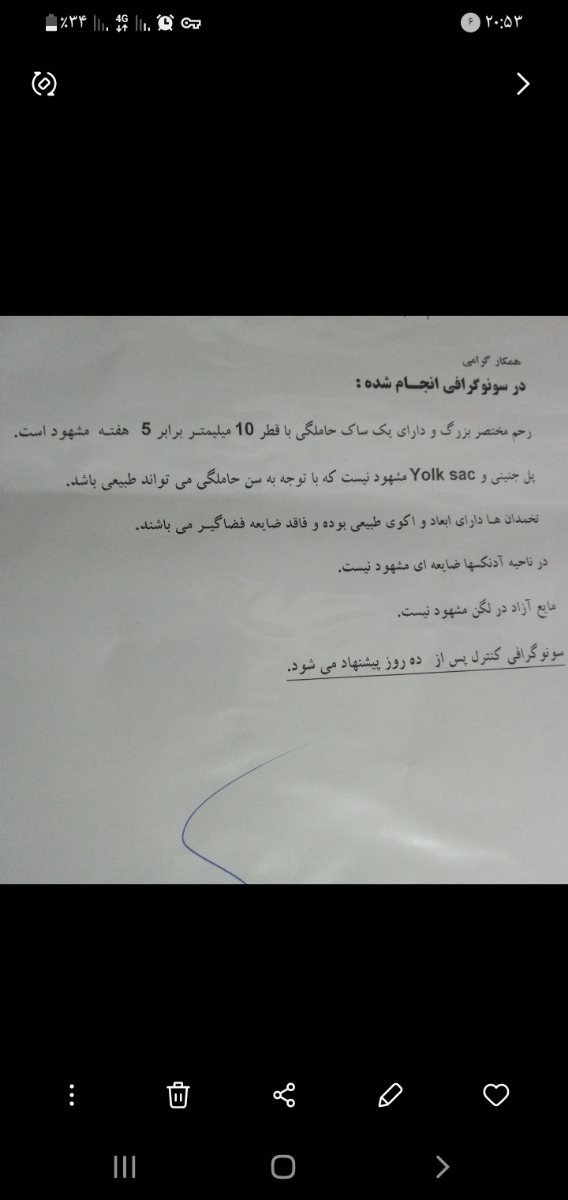 ٪۳۴ 4G ۶ ۲۰:۵۳
همکار گرامی
در سونوگرافی انجام شده :
رحم مختصر بزرگ و دارای یک ساک حاملگی با قطر 10 میلیمتر برابر 5 هفته مشهود است.
پل جنینی و Yolk sac مشهود نیست که با توجه به سن حاملگی می تواند طبیعی باشد.
تخمدان ها دارای ابعاد و اکوی طبیعی بوده و فاقد ضایعه فضاگیر می باشند.
در ناحیه آدنکسها ضایعه ای مشهود نیست.
مایع آزاد در لگن مشهود نیست.
سونوگرافی کنترل پس از ده روز پیشنهاد می شود.